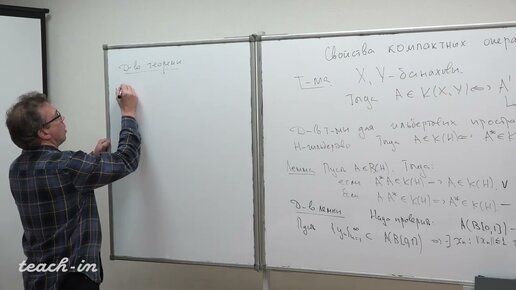 Д-во теоремы
Свойства компактных опера
Т-ма X, Y - банаховы.
Тогда A ∈ K(X, Y) <=> A'
Д-во т-мы для гильбертовых простра
H - гильбертово Тогда A ∈ K(H) <=> A* ∈ K
Лемма Пусть A ∈ B(H). Тогда:
если A*A ∈ K(H) => A ∈ K(H). V
если AA* ∈ K(H) => A* ∈ K(H).
Д-во леммы Надо проверить: A(B[0,1]) -
Пусть {yₙ}ₙ₌₁^∞ ⊂ A(B[0,1]) => ∃ xₙ: ‖xₙ‖ ≤ 1
teach-in